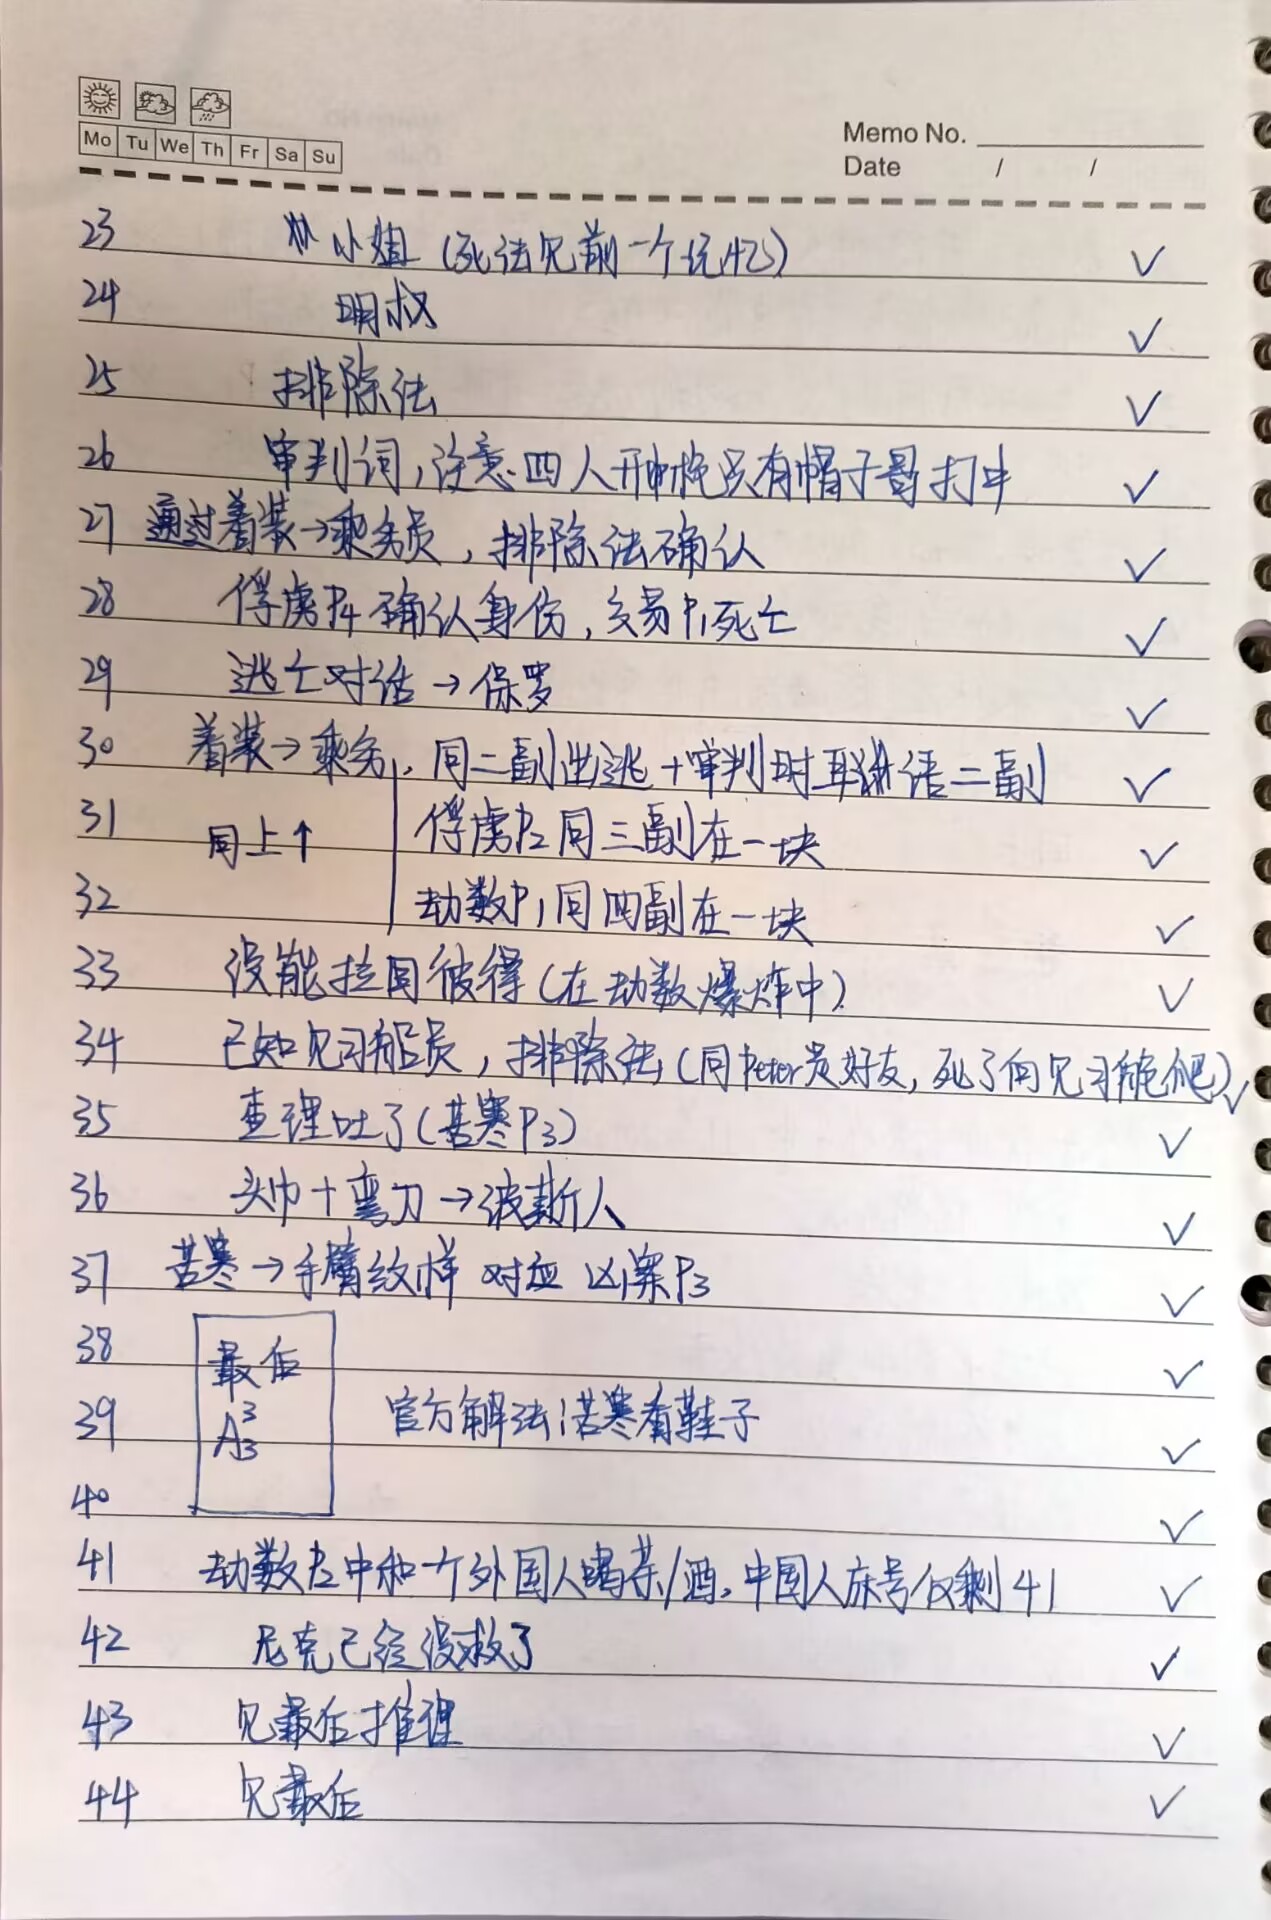 Mo Tu We Th Fr Sa Su
Memo No.
Date / /
23 林小姐（死法见前一个记忆） ✓
24 明叔 ✓
25 排除法 ✓
26 审判词，注意四人开枪只有帽子哥打中 ✓
27 通过着装→乘务员，排除法确认 ✓
28 俘虏P4 确认身份，交易P1死亡 ✓
29 逃亡对话→保罗 ✓
30 着装→乘务，同二副出逃+审判时 二副 ✓
31 同上↑ 俘虏P2 同三副在一块 ✓
32 劫数P1 同四副在一块 ✓
33 没能拉回彼得（在劫数爆炸中） ✓
34 已知见习船员，排除法（同Peter是好友，死了向见习爬） ✓
35 查理吐了（苦寒P3） ✓
36 头巾+弯刀→波斯人 ✓
37 苦寒→手臂纹样 对应 凶案P3 ✓
38 最后 ✓
39 A³₃ 官方解法：苦寒看鞋子 ✓
40 ✓
41 劫数P2中和一个外国人喝茶/酒，中国人床号仅剩41 ✓
42 尼克已经没救了 ✓
43 见最后推理 ✓
44 见最后 ✓